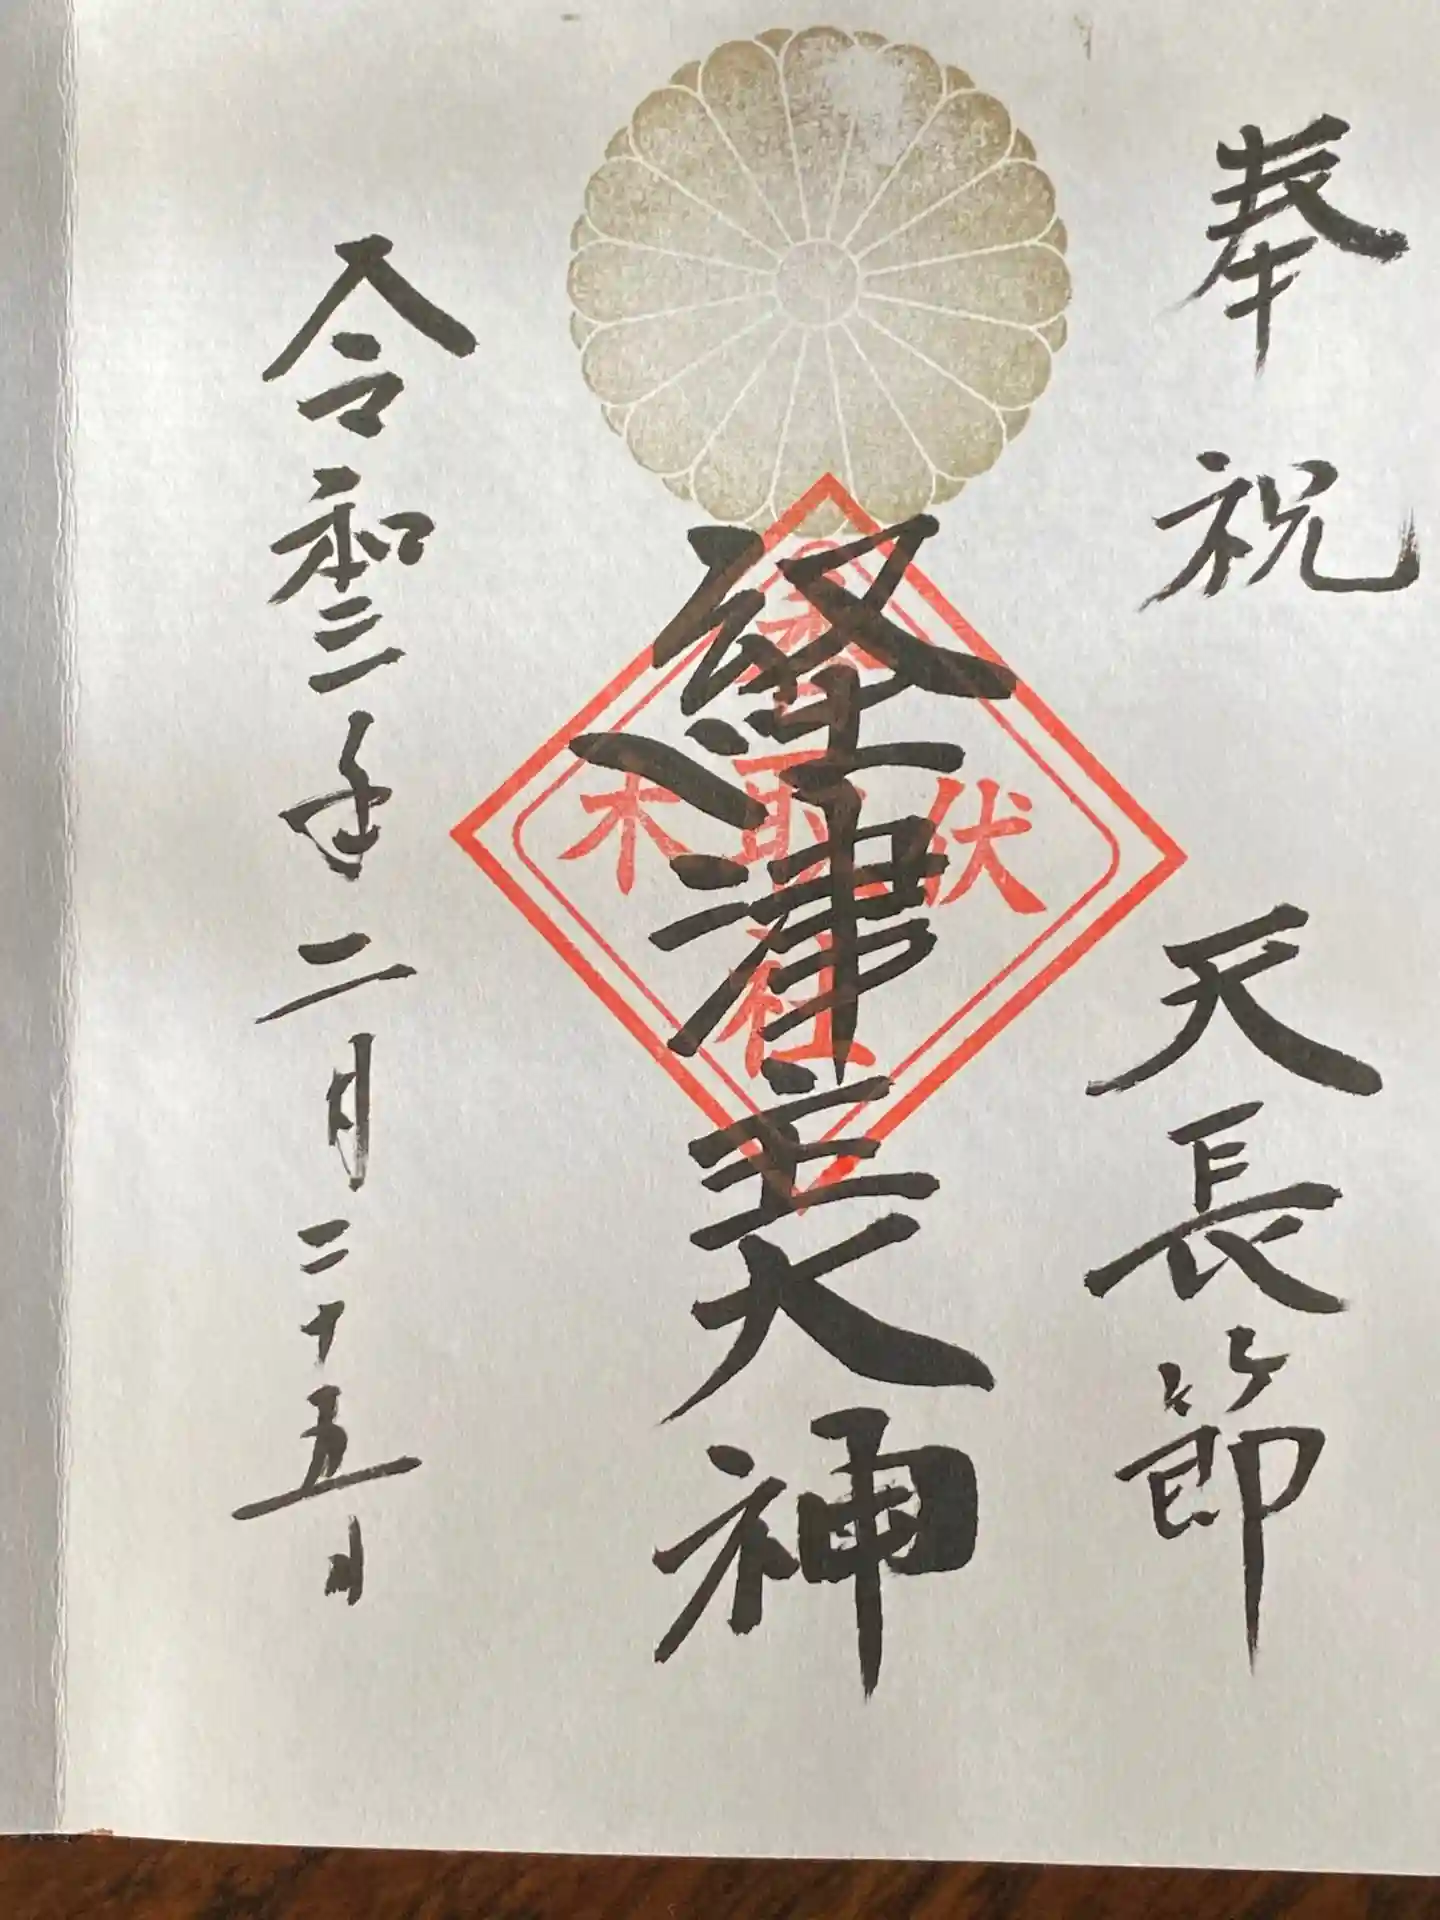 奉祝 天長節
経津主大神
伏木
香取社
令和三年二月二十五日